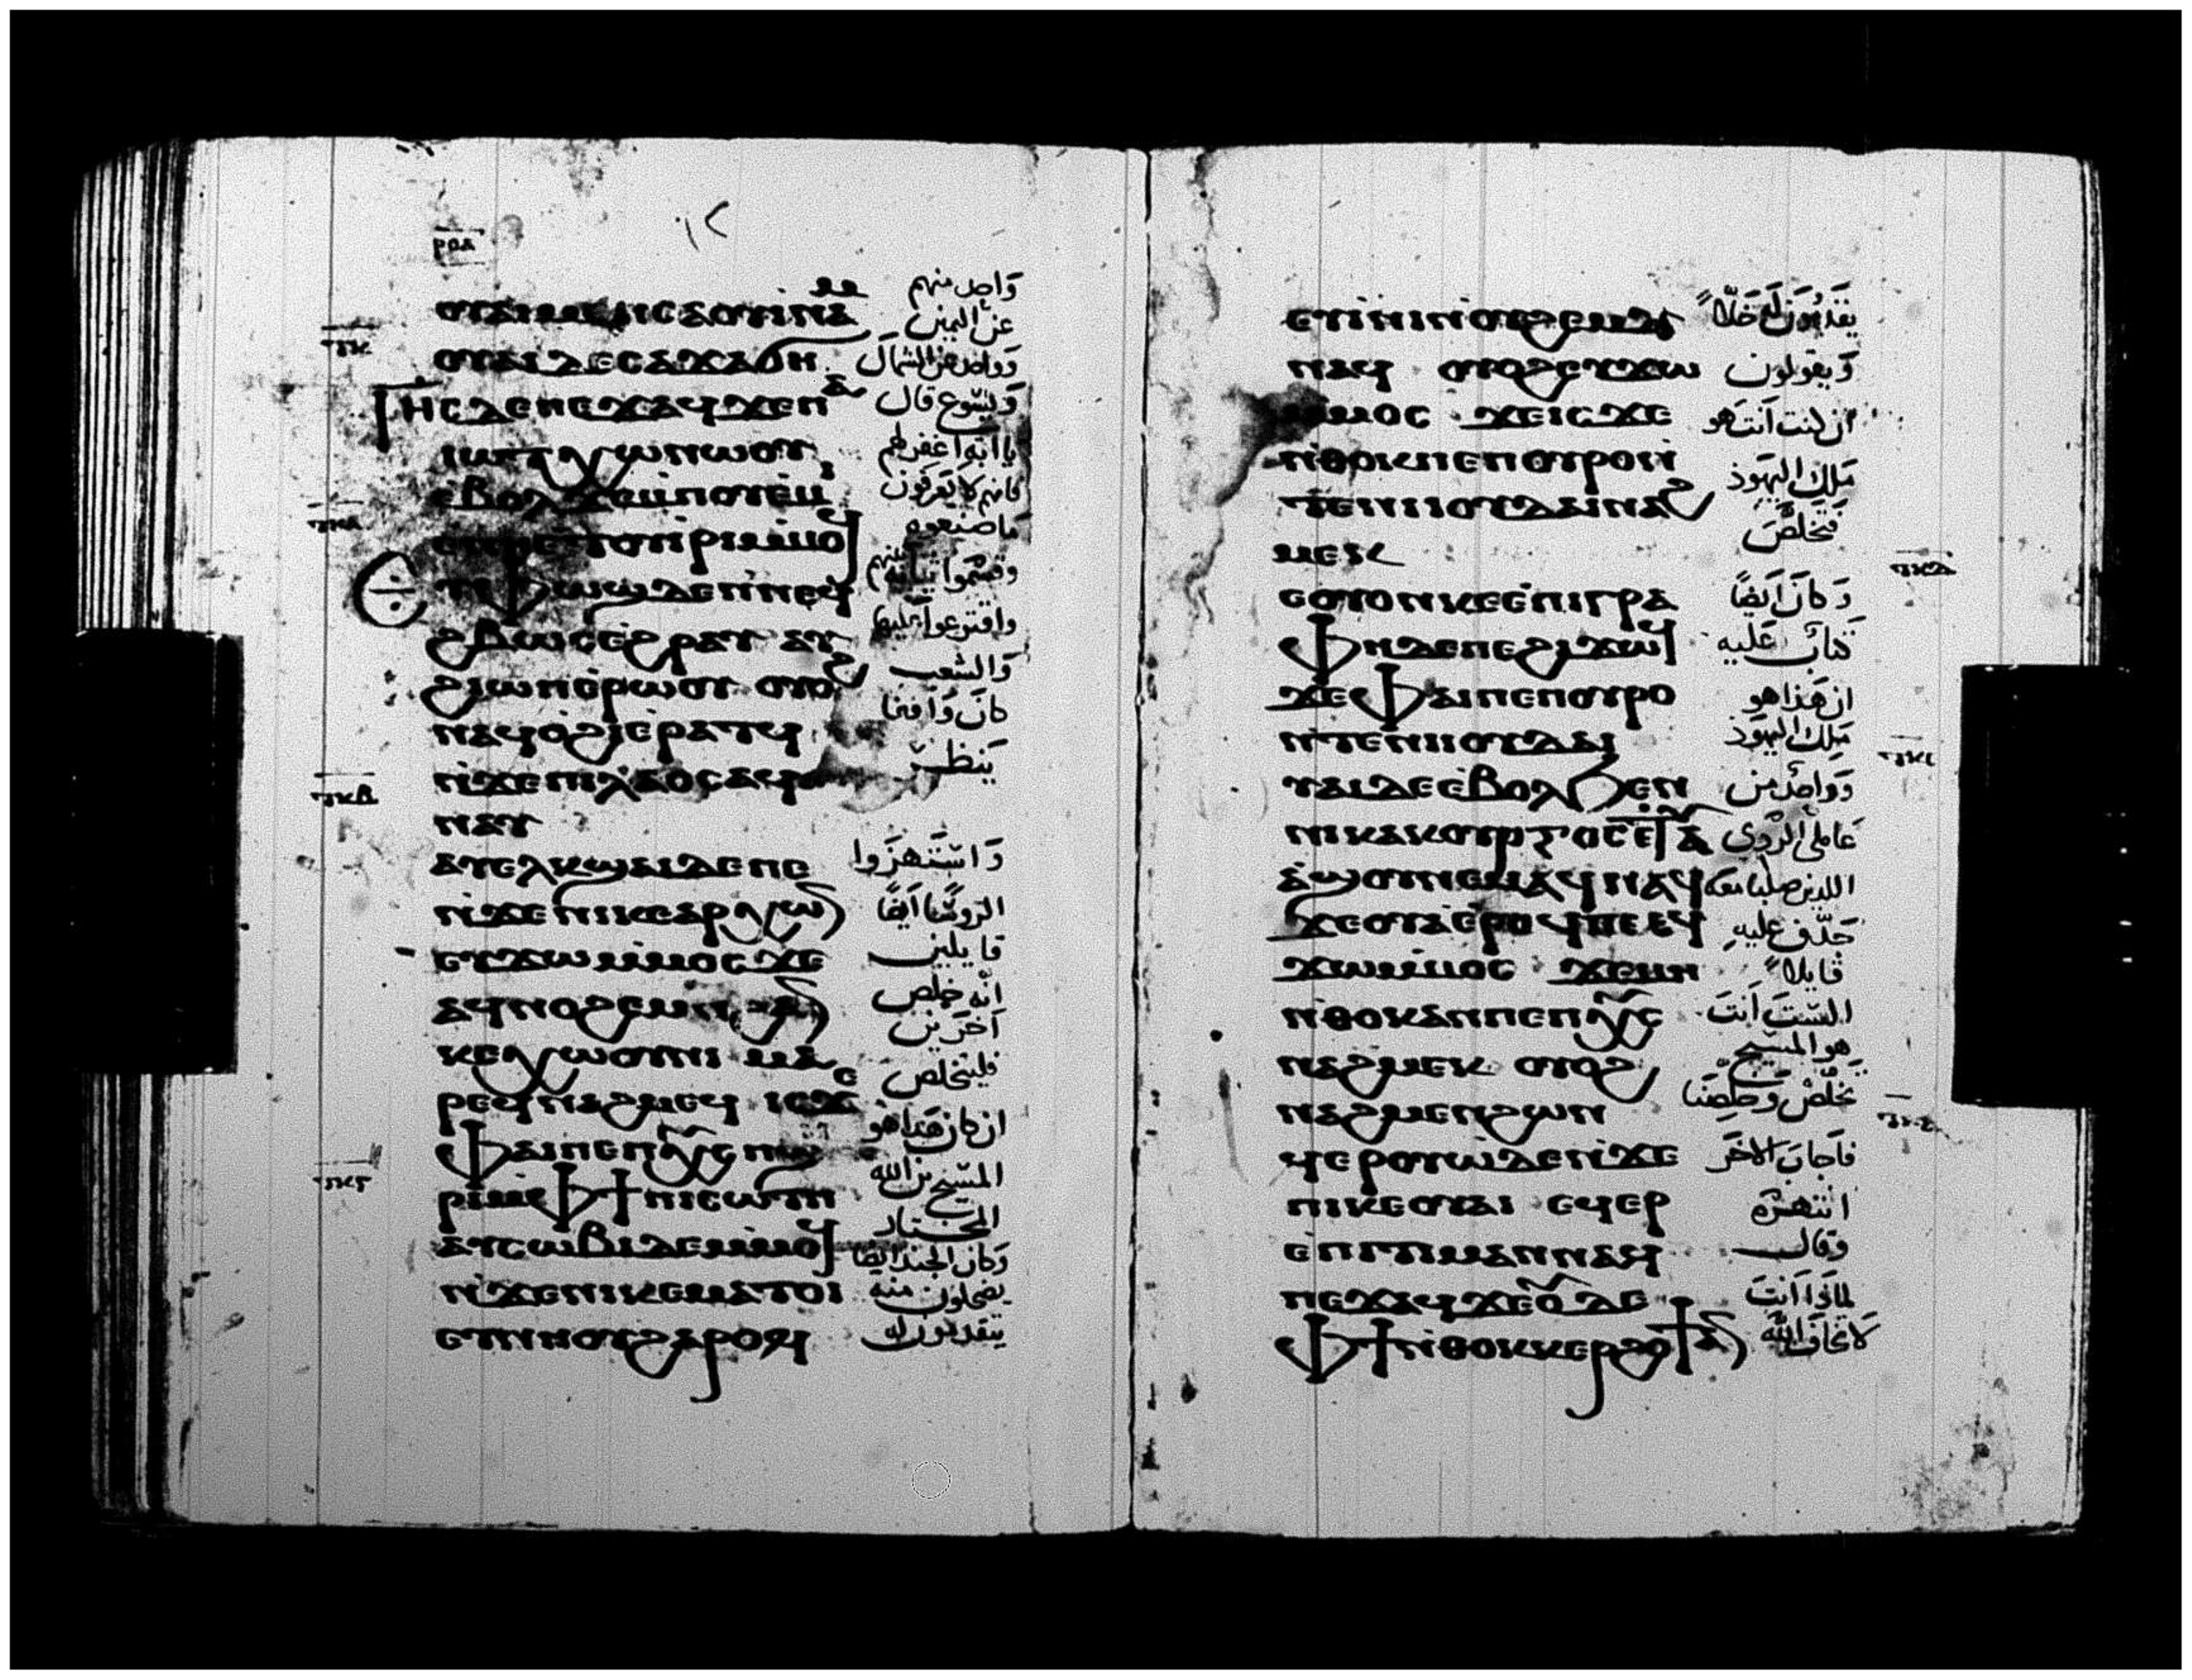 ⲟⲩⲁⲓ ⲙⲉⲛ ⲥⲁⲟⲩⲓⲛⲁⲙ
ⲟⲩⲁⲓ ⲇⲉ ⲥⲁϫⲁϭⲏ
ⲓⲏⲥ ⲇⲉ ⲡⲉϫⲁϥ ϫⲉ ⲡⲁ
ⲓⲱⲧ ⲭⲱ ⲛⲱⲟⲩ
ⲉⲃⲟⲗ ϫⲉ ⲙⲡⲟⲩⲉⲙⲓ
ⲣⲓ ⲙⲙⲟϥ
ⲉⲧⲫⲱϣ ⲇⲉ ⲛⲛⲉϥ
ϩⲃⲱⲥ ⲉϩⲣⲁⲩ ⲁⲩ
ϩⲓⲱⲡ ⲉⲣⲱⲟⲩ ⲟⲩⲟϩ
ⲛⲁϥⲟϩⲓ ⲉⲣⲁⲧϥ
ⲛϫⲉ ⲡⲓⲗⲁⲟⲥ ⲁϥ
ⲛⲁⲩ
ⲁⲩⲉⲗⲕϣⲁⲓ ⲇⲉ ⲡⲉ
ⲛϫⲉ ⲛⲓⲕⲉⲁⲣⲭⲱⲛ
ⲉⲩϫⲱ ⲙⲙⲟⲥ ϫⲉ
ⲁϥⲛⲟϩⲉⲙ ⲛϩⲁⲛ
ⲕⲉⲭⲱⲟⲩⲛⲓ ⲙⲁ
ⲣⲉϥⲛⲁϩⲙⲉϥ ⲓⲥϫⲉ
ⲫⲁⲓ ⲡⲉ ⲡⲭⲥ ⲡϣⲏ
ⲣⲓ ⲙⲫϯ ⲡⲓⲥⲱⲧⲡ
ⲁⲩⲥⲱⲃⲓ ⲇⲉ ⲙⲙⲟϥ
ⲛϫⲉ ⲛⲓⲕⲉⲙⲁⲧⲟⲓ
ⲉⲩⲛⲏⲟⲩ ϩⲁⲣⲟϥ
واحد منهم
عن اليمين
وواحد عن الشمال
ويسوع قال
يا ابه اغفر لهم
فانهم لا يعرفون
ما صنعوه
وقسموا ثيابه بينهم
واقترعوا عليها
والشعب
كان واقفا
ينظر
واستهزوا
الروسا ايضًا
قايلين
انه خلص
اخرين
فليخلص
ان كان هذا هو
المسيح بن الله
المختار
وكان الجند ايضا
يضحكون منه
يتقدمون له
ⲉⲩⲓⲛⲓ ⲛⲟⲩϩⲉⲙϫ
ⲛⲁϥ ⲟⲩⲟϩ ⲉⲩϫⲱ
ⲙⲙⲟⲥ ϫⲉ ⲓⲥϫⲉ
ⲛⲑⲟⲕ ⲡⲉ ⲡⲟⲩⲣⲟ ⲛ
ⲧⲉ ⲛⲓⲓⲟⲩⲇⲁⲓ ⲛⲁϩ
ⲙⲉⲕ
ⲉⲟⲩⲟⲛ ⲕⲉⲉⲡⲓⲅⲣⲁ
ⲫⲏ ⲇⲉ ⲡⲉ ϩⲓϫⲱϥ
ϫⲉ ⲫⲁⲓ ⲡⲉ ⲡⲟⲩⲣⲟ
ⲛⲧⲉ ⲛⲓⲓⲟⲩⲇⲁⲓ
ⲩⲁⲓ ⲇⲉ ⲉⲃⲟⲗ ϧⲉⲛ
ⲛⲓⲕⲁⲕⲟⲩⲣⲅⲟⲥ ⲉⲧⲁ
ⲁϣⲟⲩ ⲛⲉⲙⲁϥ ⲛⲁϥ
ϫⲉⲟⲩⲁ ⲉⲣⲟϥ ⲡⲉ ⲉϥ
ϫⲱ ⲙⲙⲟⲥ ϫⲉ ⲙⲏ
ⲛⲑⲟⲕ ⲁⲛ ⲡⲉ ⲡⲭⲥ
ⲛⲁϩⲙⲉⲕ ⲟⲩⲟϩ
ⲛⲁϩⲙⲉⲛ ϩⲱⲛ
ϥⲉⲣⲟⲩⲱ ⲇⲉ ⲛϫⲉ
ⲡⲓⲕⲉⲟⲩⲁⲓ ⲉϥⲉⲣ
ⲉⲡⲓⲧⲓⲙⲁⲛ ⲛⲁϥ
ⲡⲉϫⲁϥ ϫⲉ ⲟⲩⲇⲉ
ⲫϯ ⲛⲑⲟⲕ ⲕⲉⲣϩⲟϯ ⲁⲛ
يقدمون له خلا
ويقولون
ان كنت انت هو
ملك اليهود
فتخلص
وكان ايضًا
كتاب عليه
ان هذا هو
ملك اليهود
وواحد من
عاملي الردي
اللذين صلبا معه
جدف عليه
قايلا
الست انت
هو المسيح
تخلص وخلصنا
فاجاب الاخر
انتهره
وقال
لماذا انت
لا تخاف الله